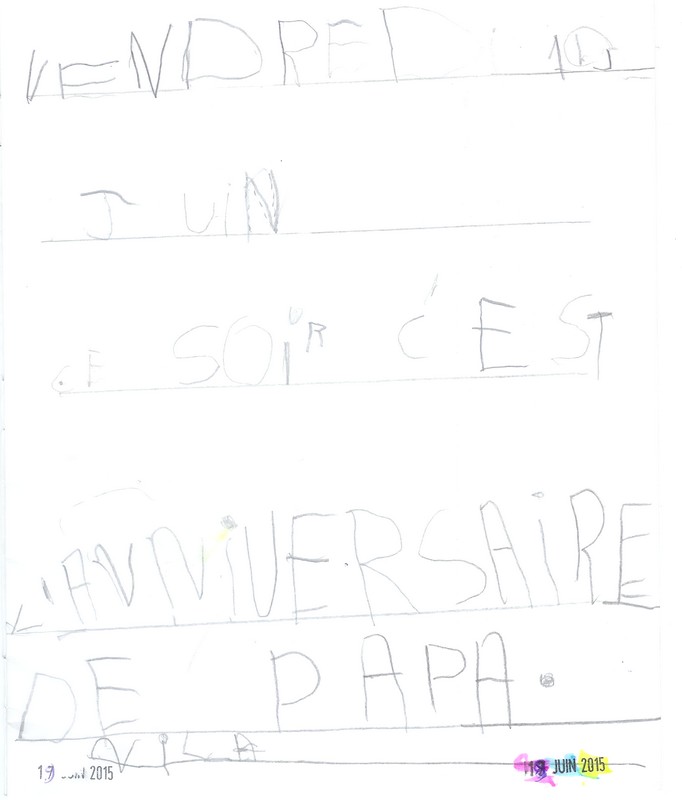 VENDREDI 19
JUIN
CE SOiR C'EST
L'ANNiVERSAiRE
DE PAPA.
NiLA
19 JUIN 2015 19 JUIN 2015